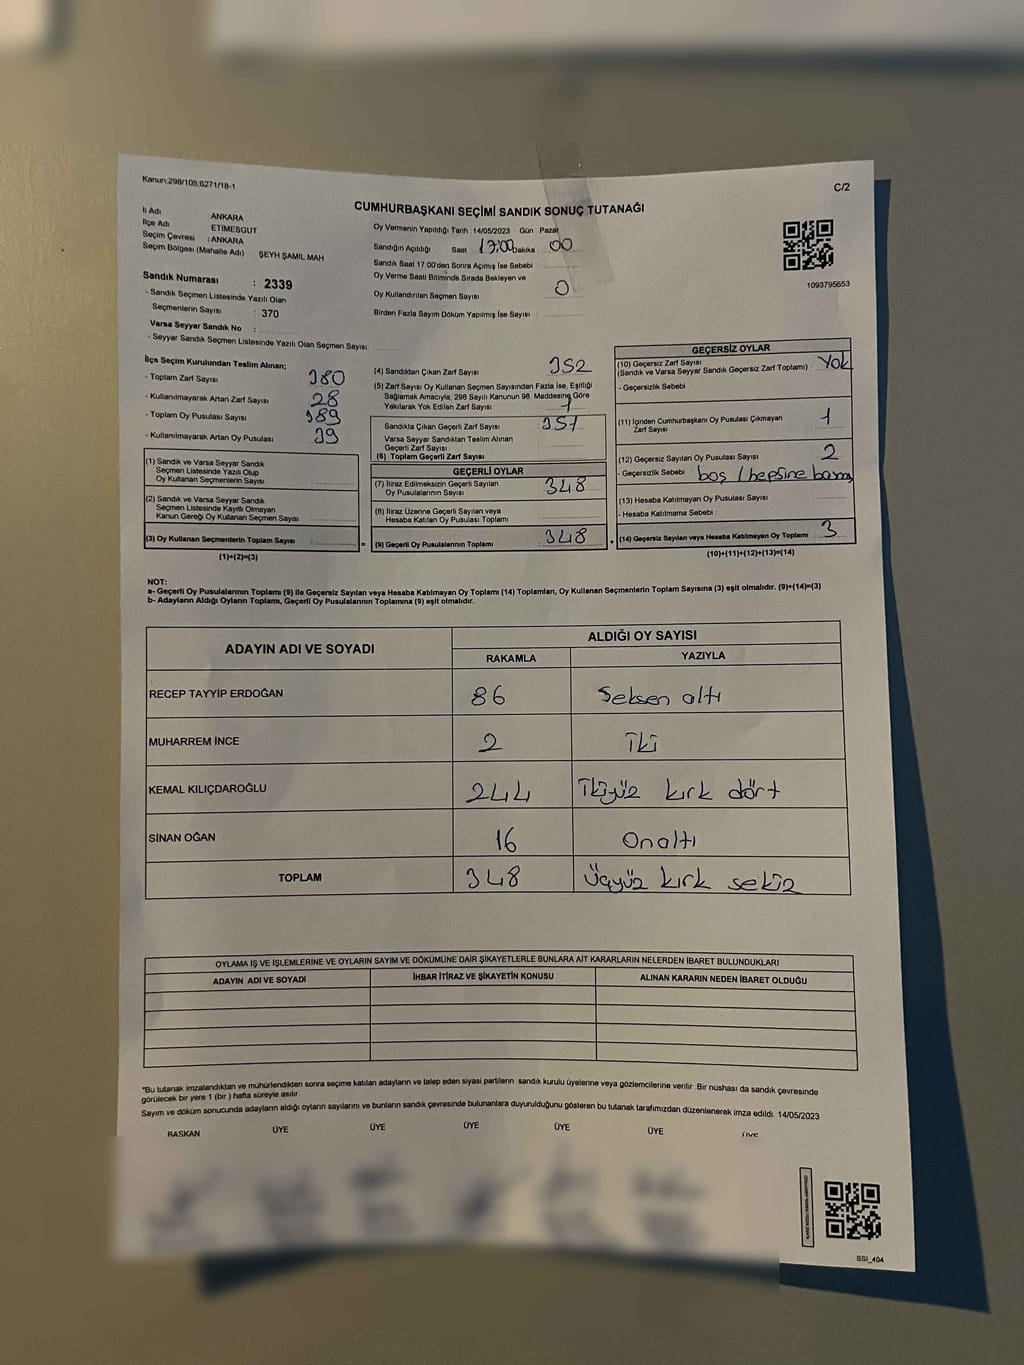 Kanun;298/105;6271/18-1
C/2
CUMHURBAŞKANI SEÇİMİ SANDIK SONUÇ TUTANAĞI
İli Adı ANKARA
İlçe Adı ETİMESGUT
Seçim Çevresi : ANKARA
Seçim Bölgesi (Mahalle Adı) ŞEYH ŞAMİL MAH
Sandık Numarası : 2339
- Sandık Seçmen Listesinde Yazılı Olan
Seçmenlerin Sayısı : 370
Varsa Seyyar Sandık No :
- Seyyar Sandık Seçmen Listesinde Yazılı Olan Seçmen Sayısı
Oy Vermenin Yapıldığı Tarih :14/05/2023 Gün Pazar
Sandığın Açıldığı Saat 17:00 Dakika 00
Sandık Saat 17:00'den Sonra Açımış İse Sebebi
Oy Verme Saati Bitiminde Sırada Bekleyen ve
Oy Kullandırılan Seçmen Sayısı 0
Birden Fazla Sayım Döküm Yapılmış İse Sayısı
1093795653
İlçe Seçim Kurulundan Teslim Alınan;
- Toplam Zarf Sayısı 380
- Kullanılmayarak Artan Zarf Sayısı 28
- Toplam Oy Pusulası Sayısı 389
- Kullanılmayarak Artan Oy Pusulası 39
(1) Sandık ve Varsa Seyyar Sandık
Seçmen Listesinde Yazılı Olup
Oy Kullanan Seçmenlerin Sayısı
(2) Sandık ve Varsa Seyyar Sandık
Seçmen Listesinde Kayıtlı Olmayan
Kanun Gereği Oy Kullanan Seçmen Sayısı
(3) Oy Kullanan Seçmenlerin Toplam Sayısı
=
(1)+(2)=(3)
(4) Sandıktan Çıkan Zarf Sayısı 352
(5) Zarf Sayısı Oy Kullanan Seçmen Sayısından Fazla İse, Eşitliği
Sağlamak Amacıyla, 298 Sayılı Kanunun 98. Maddesine Göre
Yakılarak Yok Edilen Zarf Sayısı 1
Sandıkta Çıkan Geçerli Zarf Sayısı 351
Varsa Seyyar Sandıktan Teslim Alınan
Geçerli Zarf Sayısı
(6) Toplam Geçerli Zarf Sayısı
GEÇERLİ OYLAR
(7) İtiraz Edilmeksizin Geçerli Sayılan
Oy Pusulalarının Sayısı 348
(8) İtiraz Üzerine Geçerli Sayılan veya
Hesaba Katılan Oy Pusulası Toplamı
(9) Geçerli Oy Pusulalarının Toplamı 348
+
GEÇERSİZ OYLAR
(10) Geçersiz Zarf Sayısı YOK
(Sandık ve Varsa Seyyar Sandık Geçersiz Zarf Toplamı)
- Geçersizlik Sebebi
(11) İçinden Cumhurbaşkanı Oy Pusulası Çıkmayan
Zarf Sayısı 1
(12) Geçersiz Sayılan Oy Pusulası Sayısı 2
- Geçersizlik Sebebi boş / hepsine
(13) Hesaba Katılmayan Oy Pusulası Sayısı
- Hesaba Katılmama Sebebi
(14) Geçersiz Sayılan veya Hesaba Katılmayan Oy Toplamı 3
(10)+(11)+(12)+(13)=(14)
NOT:
a- Geçerli Oy Pusulalarının Toplamı (9) ile Geçersiz Sayılan veya Hesaba Katılmayan Oy Toplamı (14) Toplamları, Oy Kullanan Seçmenlerin Toplam Sayısına (3) eşit olmalıdır. (9)+(14)=(3)
b- Adayların Aldığı Oyların Toplamı, Geçerli Oy Pusulalarının Toplamına (9) eşit olmalıdır.
ADAYIN ADI VE SOYADI ALDIĞI OY SAYISI
RAKAMLA YAZIYLA
RECEP TAYYİP ERDOĞAN 86 Seksen altı
MUHARREM İNCE 2 İki
KEMAL KILIÇDAROĞLU 244 İkiyüz kırk dört
SİNAN OĞAN 16 Onaltı
TOPLAM 348 Üçyüz kırk sekiz
OYLAMA İŞ VE İŞLEMLERİNE VE OYLARIN SAYIM VE DÖKÜMÜNE DAİR ŞİKAYETLERLE BUNLARA AİT KARARLARIN NELERDEN İBARET BULUNDUKLARI
ADAYIN ADI VE SOYADI İHBAR İTİRAZ VE ŞİKAYETİN KONUSU ALINAN KARARIN NEDEN İBARET OLDUĞU
*Bu tutanak imzalandıktan ve mühürlendikten sonra seçime katılan adayların ve talep eden siyasi partilerin sandık kurulu üyelerine veya gözlemcilerine verilir. Bir nüshası da sandık çevresinde
görülecek bir yere 1 (bir) hafta süreyle asılır.
Sayım ve döküm sonucunda adayların aldığı oyların sayılarını ve bunların sandık çevresinde bulunanlara duyurulduğunu gösteren bu tutanak tarafımızdan düzenlenerek imza edildi. 14/05/2023
BAŞKAN ÜYE ÜYE ÜYE ÜYE ÜYE ÜYE
SSI_404